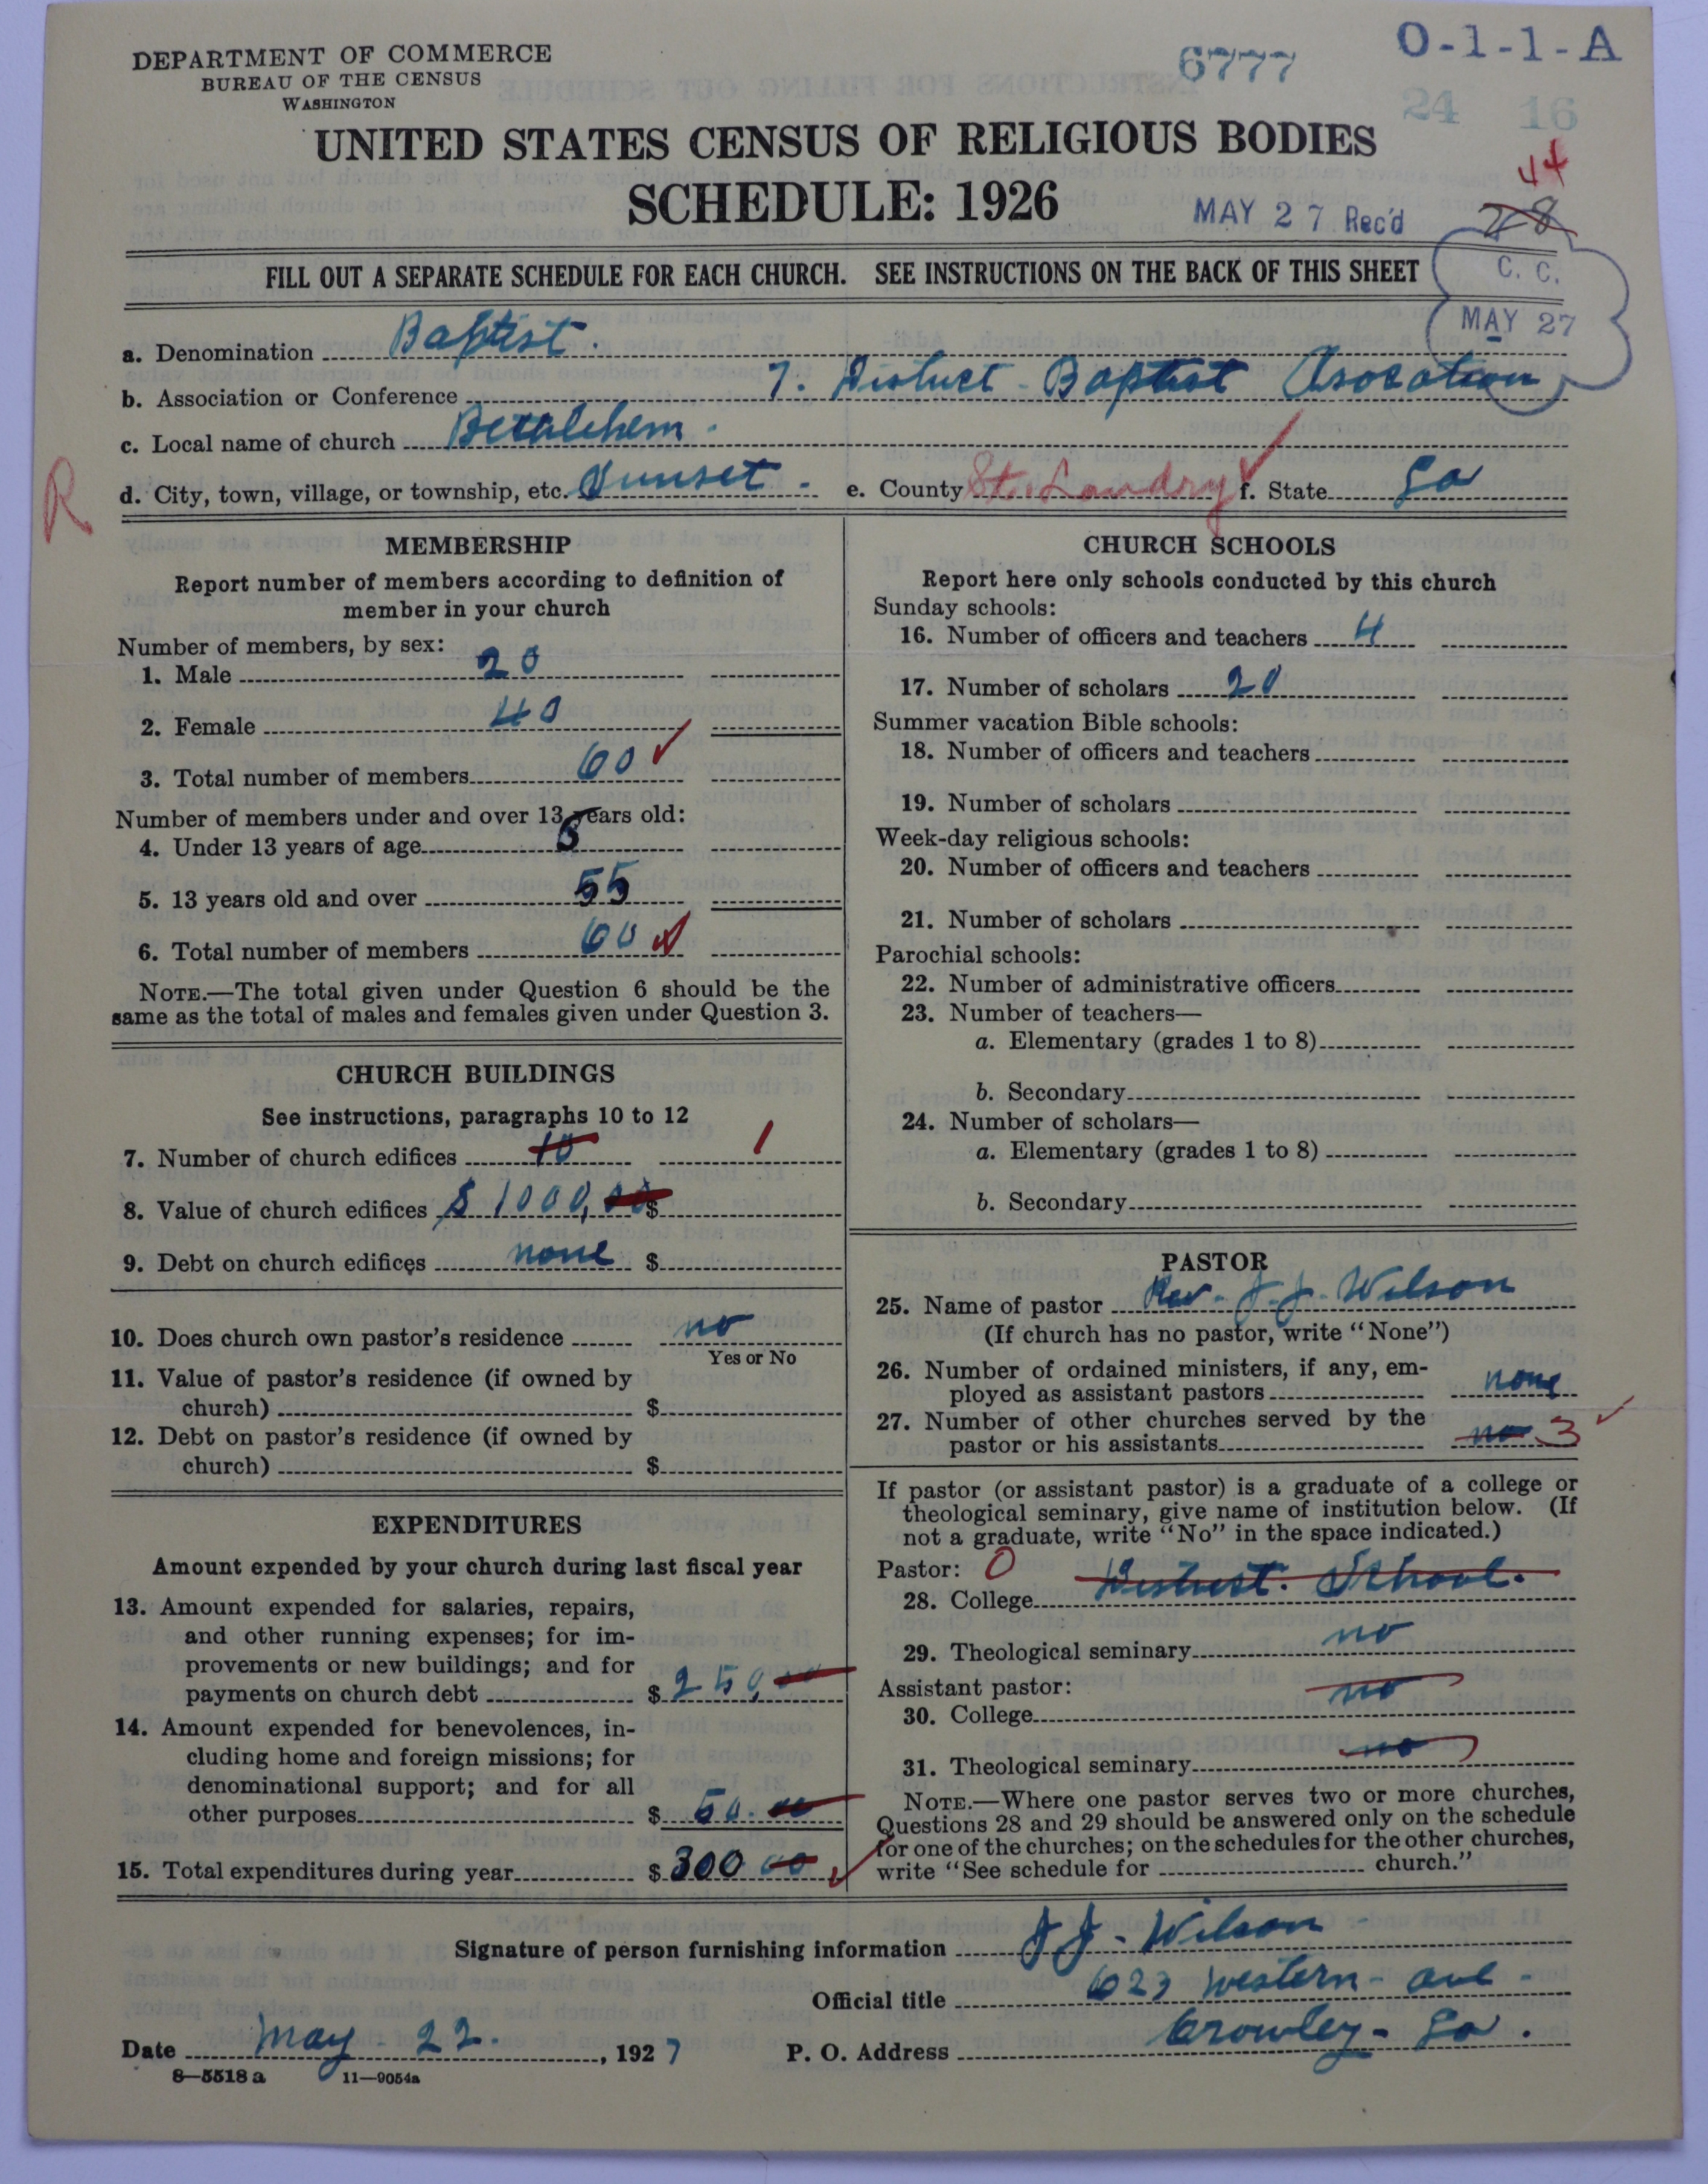 DEPARTMENT OF COMMERCE
BUREAU OF THE CENSUS
WASHINGTON
6777
O-1-1-A
24 16
UNITED STATES CENSUS OF RELIGIOUS BODIES
44
SCHEDULE: 1926
MAY 27 Rec'd
28
FILL OUT A SEPARATE SCHEDULE FOR EACH CHURCH. SEE INSTRUCTIONS ON THE BACK OF THIS SHEET
C. C.
MAY 27
a. Denomination Baptist.
b. Association or Conference 7. District Baptist Asocation
c. Local name of church Bethlehem.
d. City, town, village, or township, etc. Sunset. e. County St. Landry f. State La
R
MEMBERSHIP
Report number of members according to definition of
member in your church
Number of members, by sex:
1. Male 20
2. Female 40
3. Total number of members 60
Number of members under and over 13 years old:
4. Under 13 years of age 5
5. 13 years old and over 55
6. Total number of members 60
NOTE.—The total given under Question 6 should be the
same as the total of males and females given under Question 3.
CHURCH BUILDINGS
See instructions, paragraphs 10 to 12
7. Number of church edifices 10 1
8. Value of church edifices $1000,00 $
9. Debt on church edifices none $
10. Does church own pastor's residence no
Yes or No
11. Value of pastor's residence (if owned by
church) $
12. Debt on pastor's residence (if owned by
church) $
EXPENDITURES
Amount expended by your church during last fiscal year
13. Amount expended for salaries, repairs,
and other running expenses; for im-
provements or new buildings; and for
payments on church debt $ 250,00
14. Amount expended for benevolences, in-
cluding home and foreign missions; for
denominational support; and for all
other purposes $ 50.00
15. Total expenditures during year $ 300 00
CHURCH SCHOOLS
Report here only schools conducted by this church
Sunday schools:
16. Number of officers and teachers 4
17. Number of scholars 20
Summer vacation Bible schools:
18. Number of officers and teachers
19. Number of scholars
Week-day religious schools:
20. Number of officers and teachers
21. Number of scholars
Parochial schools:
22. Number of administrative officers
23. Number of teachers—
a. Elementary (grades 1 to 8)
b. Secondary
24. Number of scholars—
a. Elementary (grades 1 to 8)
b. Secondary
PASTOR
25. Name of pastor Rev. J. J. Wilson
(If church has no pastor, write "None")
26. Number of ordained ministers, if any, em-
ployed as assistant pastors none
27. Number of other churches served by the
pastor or his assistants no 3
If pastor (or assistant pastor) is a graduate of a college or
theological seminary, give name of institution below. (If
not a graduate, write "No" in the space indicated.)
Pastor: 0
28. College School.
29. Theological seminary no
Assistant pastor:
30. College no
31. Theological seminary no
NOTE.—Where one pastor serves two or more churches,
Questions 28 and 29 should be answered only on the schedule
for one of the churches; on the schedules for the other churches,
write "See schedule for church."
Signature of person furnishing information J J. Wilson
Official title 623 Western ave.
Date May 22. , 1927 P. O. Address Crowley- La.
8—5518 a 11—9054a